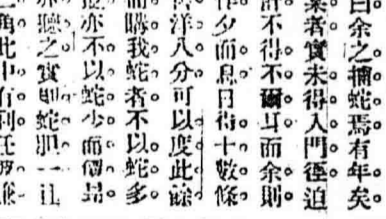 曰余之捕蛇焉有年矣。
業者實未得入門徑迫
計不得不爾耳而余則
作夕而息日得十數條
洋八分可以度此餘
而購我蛇者不以蛇多
亦不以蛇少而價昂。
亦聽之實即蛇胆一且
角此中有利